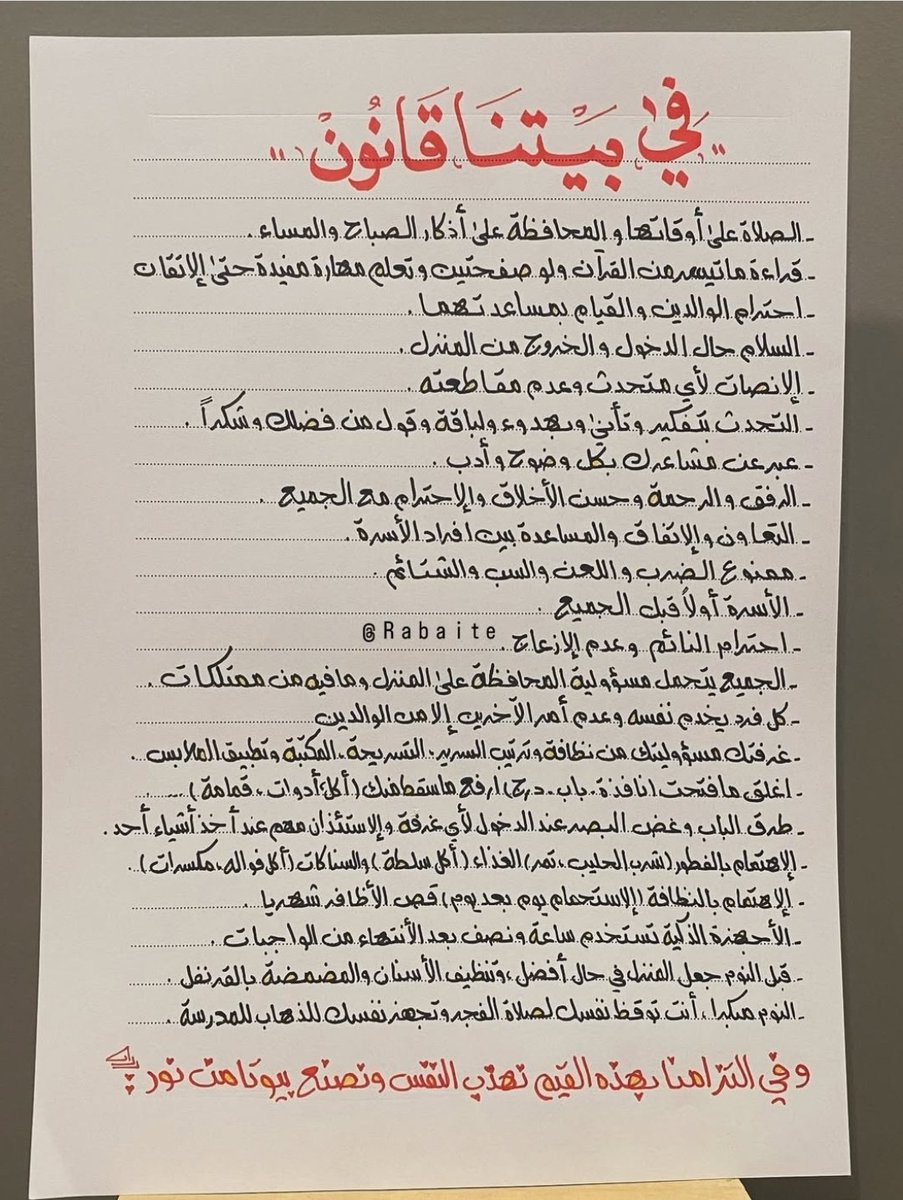 " فِي بَيْتِنَا قَانُون "
ـ الصلاة على أوقاتها والمحافظة على أذكار الصباح والمساء .
ـ قراءة ماتيسر من القرآن ولو صفحتين وتعلم مهارة مفيدة حتى الإتقان
ـ احترام الوالدين والقيام بمساعدتهما .
ـ السلام حال الدخول والخروج من المنزل .
ـ الإنصات لأي متحدث وعدم مقاطعته .
ـ التحدث بتفكير وتأني وبهدوء ولباقة وقول من فضلك وشكراً .
ـ عبر عن مشاعرك بكل وضوح وأدب .
ـ الرفق والرحمة وحسن الأخلاق والإحترام مع الجميع .
ـ التعاون والإتفاق والمساعدة بين افراد الأسرة .
ـ ممنوع الضرب واللعن والسب والشتائم .
ـ الأسرة أولاً قبل الجميع .
@Rabaite
ـ احترام النائم وعدم الإزعاج .
ـ الجميع يتحمل مسؤولية المحافظة على المنزل ومافيه من ممتلكات .
ـ كل فرد يخدم نفسه وعدم أمر الآخرين إلا من الوالدين
ـ غرفتك مسؤوليتك من نظافة وترتيب السرير . التسريحة ، المكتبة وتطبيق الملابس .
ـ اغلق مافتحت (نافذة ـ باب ـ درج) ارفع ماسقط منك (أكل ، أدوات ، قمامة) ....
ـ طرق الباب وغض البصر عند الدخول لأي غرفة والإستئذان مهم عند أخذ أشياء أحد .
ـ الإهتمام بالفطور (شرب الحليب ، تمر) الغذاء (أكل سلطة) والسناكات (أكل فواكه ، مكسرات) .
ـ الإهتمام بالنظافة (الإستحمام يوم بعد يوم) قص الأظافر شهريا
ـ الأجهزة الذكية تستخدم ساعة ونصف بعد الأنتهاء من الواجبات .
ـ قبل النوم جعل المنزل في حال أفضل ، وتنظيف الأسنان والمضمضة بالقرنفل .
ـ النوم مبكرا ، أنت توقظ نفسك لصلاة الفجر وتجهز نفسك للذهاب للمدرسة .
وفي التزامنا بهذه القيم نهذب النفس ونصنع بيوتا من نور